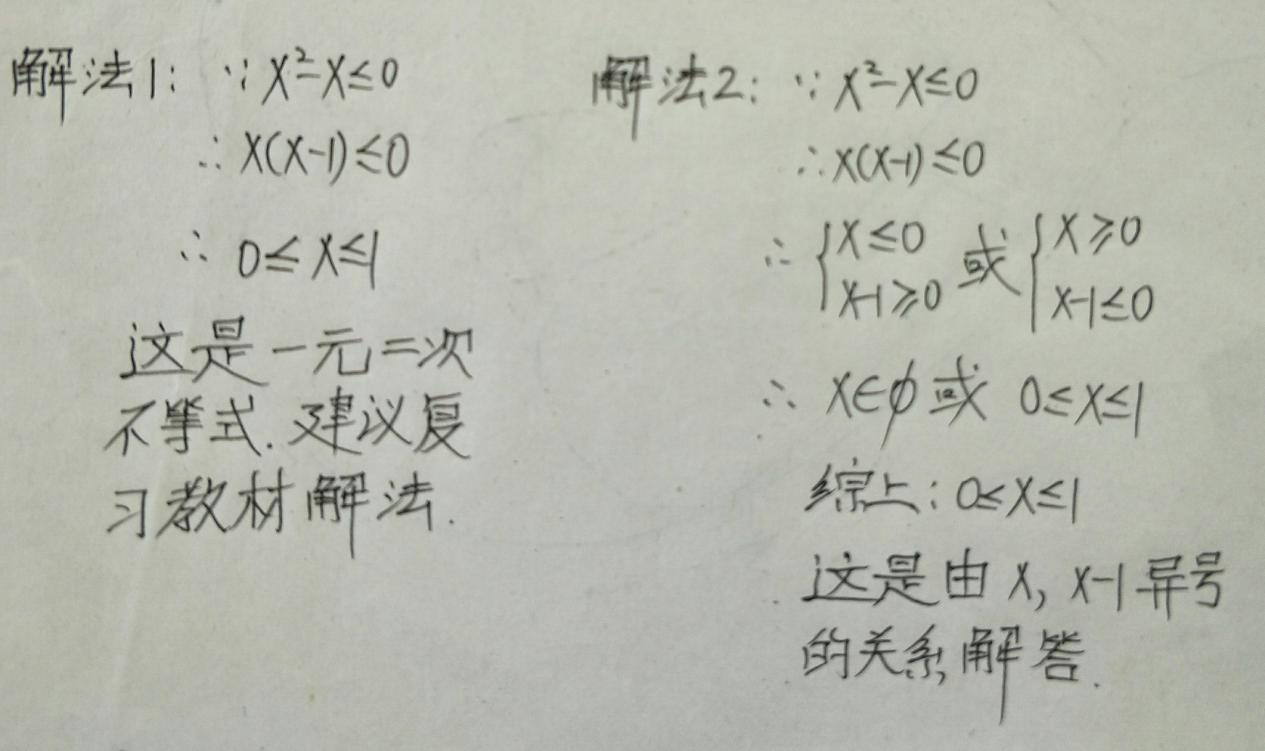 解法1: ∵ x²-x≤0
∴ x(x-1)≤0
∴ 0≤x≤1
这是一元二次
不等式.建议复
习教材解法.
解法2: ∵ x²-x≤0
∴ x(x-1)≤0
∴ {x≤0 或 {x≥0
x-1≥0 x-1≤0
∴ x∈∅或 0≤x≤1
综上: 0≤x≤1
这是由x, x-1异号
的关系解答.